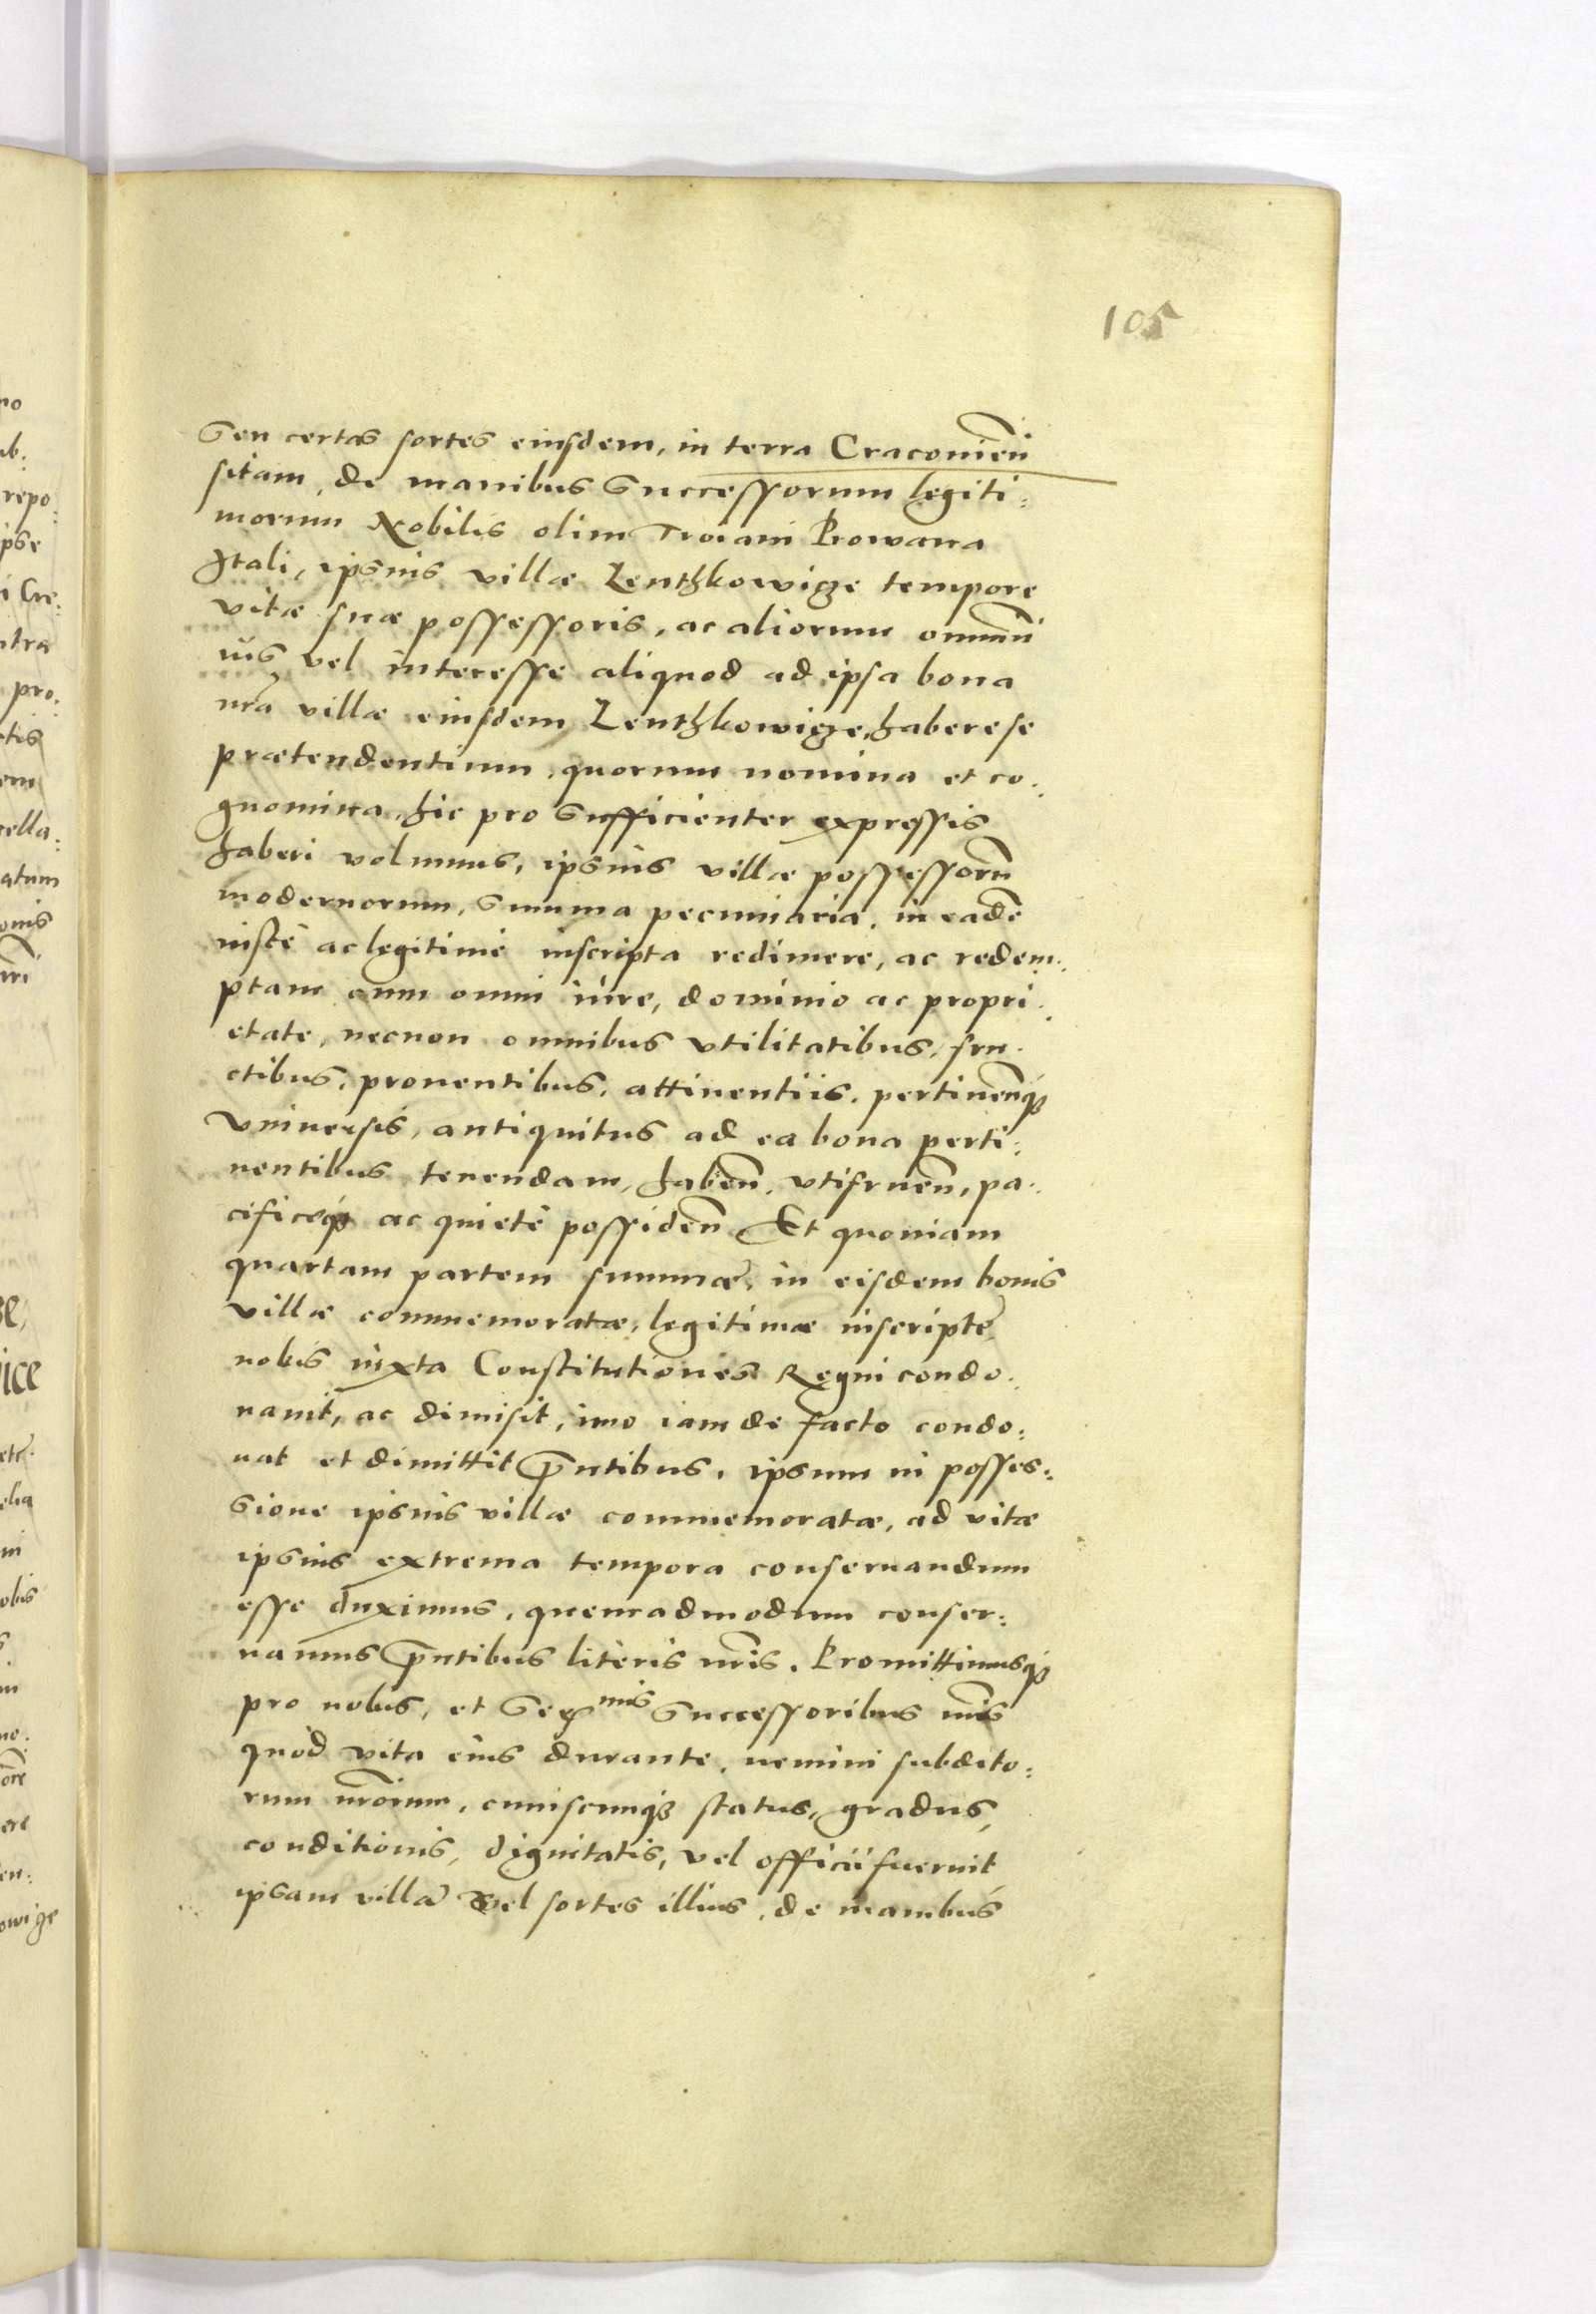 105
Seu certas sortes eiusdem, in terra Cracouien̄
sitam, de manibus Successorum legiti:
morum Nobilis olim Troiani Prowana
Itali, ipsius villæ Zenthkowicze tempore
vitæ suæ possessoris, ac aliorum omniū
ius vel interesse aliquod ad ipsa bona
nrā villæ eiusdem Zenthkowicze, habere se
prætendentium, quorum nomina et co:
gnomina, hic pro Sufficienter expressis
haberi volumus, ipsius villæ possessorū
modernorum, Summa pecuniaria, in eadē
iustè ac legitimè inscripta redimere, ac redem:
ptam cum omni iure, dominio ac propri:
etate, necnon omnibus vtilitatibus, fru:
ctibus, prouentibus, attinentiis, pertinen̄qꝫ
vniuersis, antiquitus ad ea bona perti:
nentibus tenendam, haben̄, vtifruen̄, pa:
cificeqꝫ ac quietè possiden̄ Et quoniam
quartam partem summæ, in eisdem bonis
villæ commemoratæ, legitimæ inscriptę
nobis iuxta Constitutiones Regni condo:
nauit, ac dimisit, imo iam de facto condo:
nat et dimittit p̄ntibus, ipsum in posses:
sione ipsius villæ commemoratæ, ad vitæ
ipsius extrema tempora conseruandum
esse duximus, quemadmodum conser:
uamus p̄ntibus literis nr̄is. Promittimusqꝫ
pro nobis, et Ser^mis Successoribus nr̄is
quod vita eius durante, nemini subdito:
rum nr̄orum, cuiuscunqꝫ status, gradus,
conditionis, dignitatis, vel officii fuerint
ipsam villā vel sortes illius, de manibus